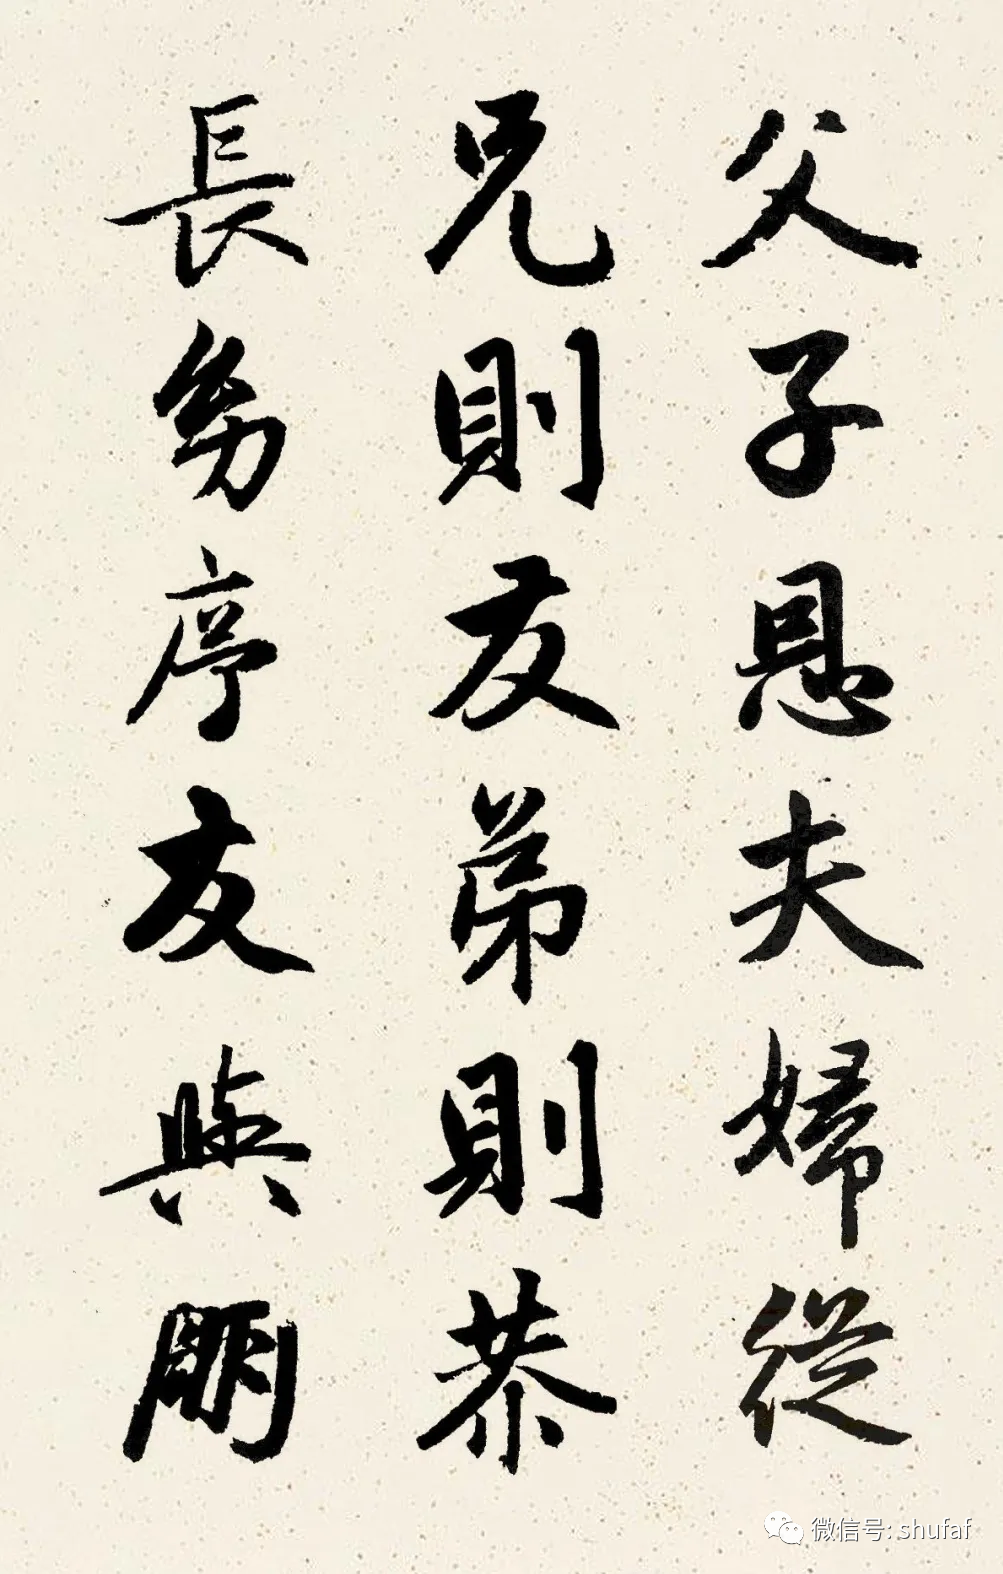 父子恩夫婦從
兄則友弟則恭
長幼序友與朋
微信号: shufaf